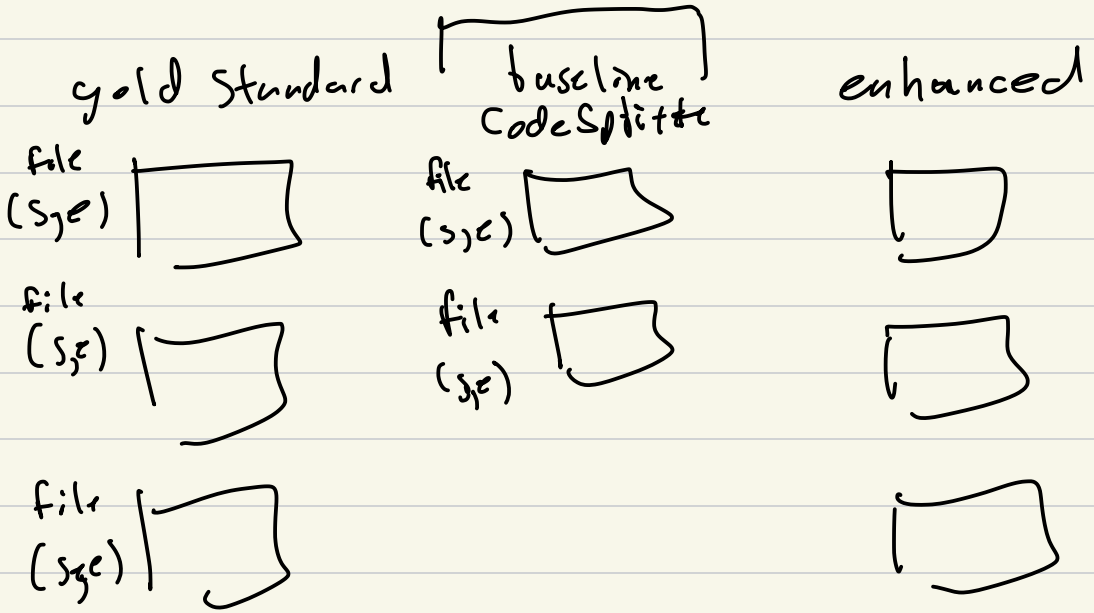 gold Standard
baseline
CodeSplitte
enhanced
file
(s,e)
file
(s,e)
file
(s,e)
file
(s,e)
file
(s,e)